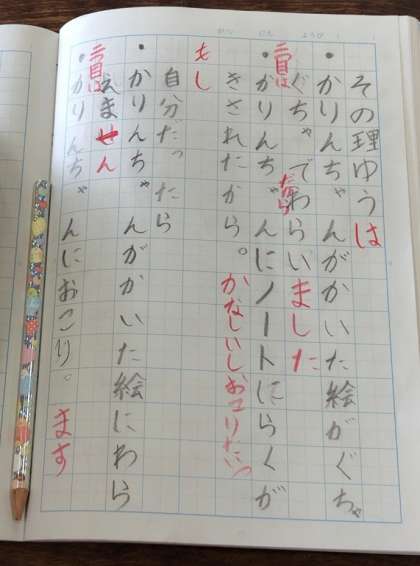 その理ゆうは
・かりんちゃんがかいた絵がぐちゃ
ぐちゃでわらいました
二つ目は
だから
・かりんちゃんにノートにらくが
きされたから。かなしいしおこりたいっ
もし
自分だったら
・かりんちゃんがかいた絵にわら
えません
二つ目は
・かりんちゃんにおこり。ます